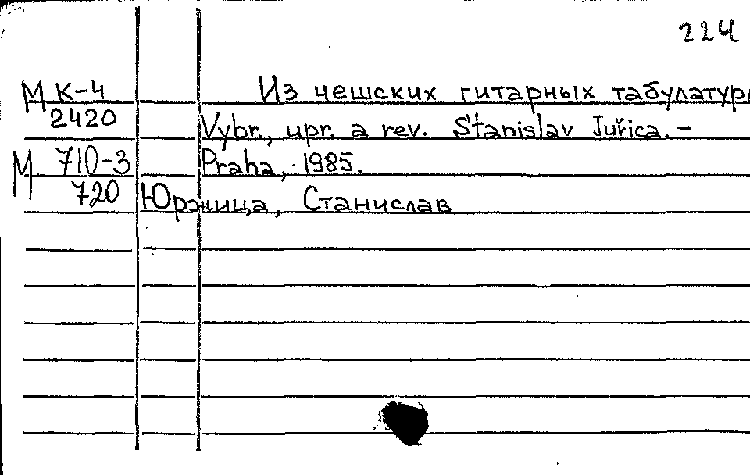 224
М К-4 Из чешских гитарных табулатур
2420 Vybr., upr. a rev. Stanislav Juřica. –
М 710-3 Praha, 1985.
720 Юржица, Станислав